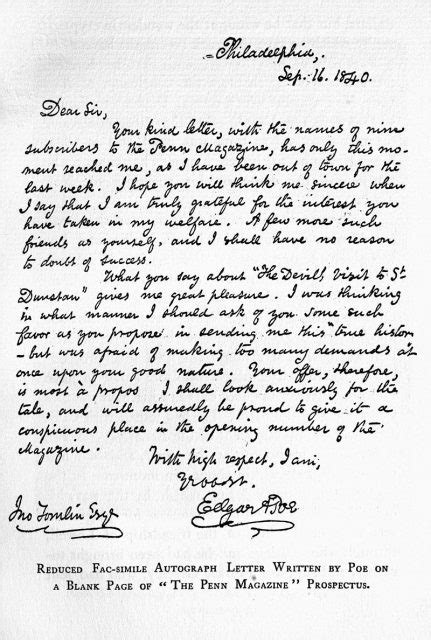 Philadelphia,
Sep. 16. 1840.
Dear Sir,
Your kind letter, with the names of nine
subscribers to the Penn Magazine, has only this mo-
ment reached me, as I have been out of town for the
last week. I hope you will think me sincere when
I say that I am truly grateful for the interest you
have taken in my welfare. A few more such
friends as yourself, and I shall have no reason
to doubt of success.
What you say about "The Devil's Visit to St
Dunstan" gives me great pleasure. I was thinking
in what manner I should ask of you some such
favor as you propose in sending me this "true history"
- but was afraid of making too many demands at
once upon your good nature. Your offer, therefore,
is most à propos I shall look anxiously for the
tale, and will assuredly be proud to give it a
conspicuous place in the opening number of the
Magazine.
With high respect, I am,
Yr obdt. St.
Edgar A Poe
Jno Tomlin Esqr
REDUCED FAC-SIMILE AUTOGRAPH LETTER WRITTEN BY POE ON
A BLANK PAGE OF "THE PENN MAGAZINE" PROSPECTUS.